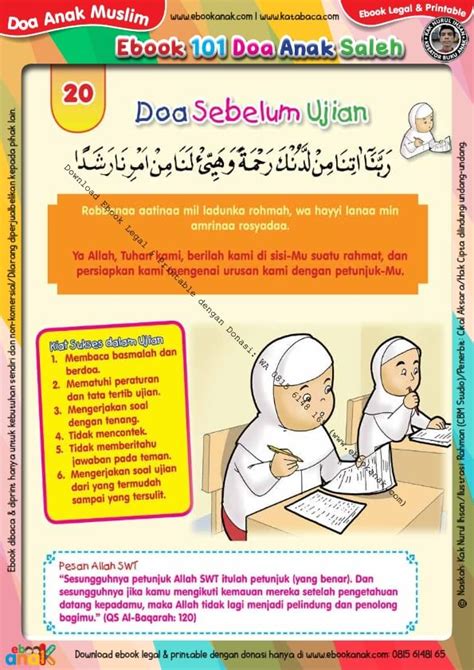 Doa Anak Muslim
www.ebookanak.com | www.katabaca.com
Ebook Legal & Printable
Ebook 101 Doa Anak Saleh
20
Doa Sebelum Ujian
رَبَّنَا اٰتِنَا مِنْ لَّدُنْكَ رَحْمَةً وَهَيِّئْ لَنَا مِنْ اَمْرِنَا رَشَدًا
Robbanaa aatinaa mil ladunka rohmah, wa hayyi lanaa min
amrinaa rosyadaa.
Ya Allah, Tuhan kami, berilah kami di sisi-Mu suatu rahmat, dan
persiapkan kami mengenai urusan kami dengan petunjuk-Mu.
Kiat Sukses dalam Ujian
1. Membaca basmalah dan
berdoa.
2. Mematuhi peraturan
dan tata tertib ujian.
3. Mengerjakan soal
dengan tenang.
4. Tidak mencontek.
5. Tidak memberitahu
jawaban pada teman.
6. Mengerjakan soal ujian
dari yang termudah
sampai yang tersulit.
Pesan Allah SWT
“Sesungguhnya petunjuk Allah SWT itulah petunjuk (yang benar). Dan
sesungguhnya jika kamu mengikuti kemauan mereka setelah pengetahuan
datang kepadamu, maka Allah tidak lagi menjadi pelindung dan penolong
bagimu.” (QS Al-Baqarah: 120)
Ebook dibaca & diprint hanya umuk kebutuhan sendiri dan non-komersial/Dilarang diperjualbelikan kepada pihak lain.
© Naskah: Kak Nurul Ihsan/Ilustrasi: Rahman (CBM Studio)/Penerbit: Cikal Aksara/Hak Cipta dilindungi undang-undang
Download Ebook Legal & Printable dengan Donasi: WA 0815 6148 165 (www.ebookanak.com)
ebook
anak
Download ebook legal & printable dengan donasi hanya di www.ebookanak.com: 0815 61481 65